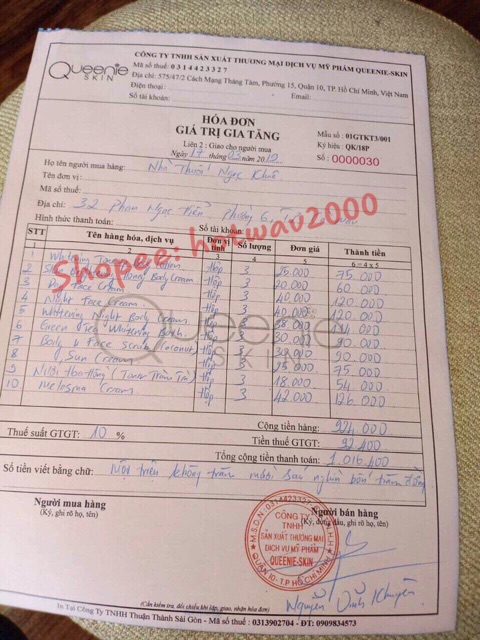 Queenie
SKIN
CÔNG TY TNHH SẢN XUẤT THƯƠNG MẠI DỊCH VỤ MỸ PHẨM QUEENIE-SKIN
Mã số thuế: 0314423327
Địa chỉ: 575/47/2 Cách Mạng Tháng Tám, Phường 15, Quận 10, TP. Hồ Chí Minh, Việt Nam
Điện thoại: Email:
Số tài khoản:
HÓA ĐƠN
GIÁ TRỊ GIA TĂNG
Liên 2: Giao cho người mua
Ngày 17 tháng 03 năm 2019
Mẫu số: 01GTKT3/001
Ký hiệu: QK/18P
Số: 0000030
Họ tên người mua hàng: Nhà Thuốc Ngọc Khuê
Tên đơn vị:
Mã số thuế:
Địa chỉ: 32 Phan Ngọc Hiển, Phường 6,
Hình thức thanh toán: Số tài khoản:
STT Tên hàng hóa, dịch vụ Đơn vị tính Số lượng Đơn giá Thành tiền
3 4 5 6 = 4 x 5
1 Whitening Hộp 3 25.000 75.000
2 Body Cream Hộp 3 20.000 60.000
3 Day Face Cream Hộp 3 40.000 120.000
4 Night Face Cream Hộp 3 40.000 120.000
5 Whitening Night Body Cream Hộp 3
6 Green Tea Whitening Hộp 3 30.000 90.000
7 Body & Face Scrub (Coconut) Hộp 3 30.000 90.000
8 Sun Cream Hộp 3 25.000 75.000
9 Nước Hoa Hồng (Toner Tràm Trà) Hộp 3 18.000 54.000
10 Melasma Cream Hộp 3 42.000 126.000
Shopee: hotwav2000
Queenie
SKIN
Cộng tiền hàng: 924.000
Thuế suất GTGT: 10 % Tiền thuế GTGT: 92.400
Tổng cộng tiền thanh toán: 1.016.400
Số tiền viết bằng chữ: Một triệu không trăm mười sáu nghìn bốn trăm đồng
Người mua hàng
(Ký, ghi rõ họ, tên)
Người bán hàng
(Ký, đóng dấu, ghi rõ họ, tên)
M.S.D.N: 0314423327
CÔNG TY
TNHH
SẢN XUẤT THƯƠNG MẠI
DỊCH VỤ MỸ PHẨM
QUEENIE-SKIN
QUẬN 10-T.P HỒ CHÍ MINH
Nguyễn Đình Khuyến
(Cần kiểm tra, đối chiếu khi lập, giao, nhận hóa đơn)
In Tại Công Ty TNHH Thuận Thành Sài Gòn - Mã số thuế: 0313902704 - ĐT: 0909834573